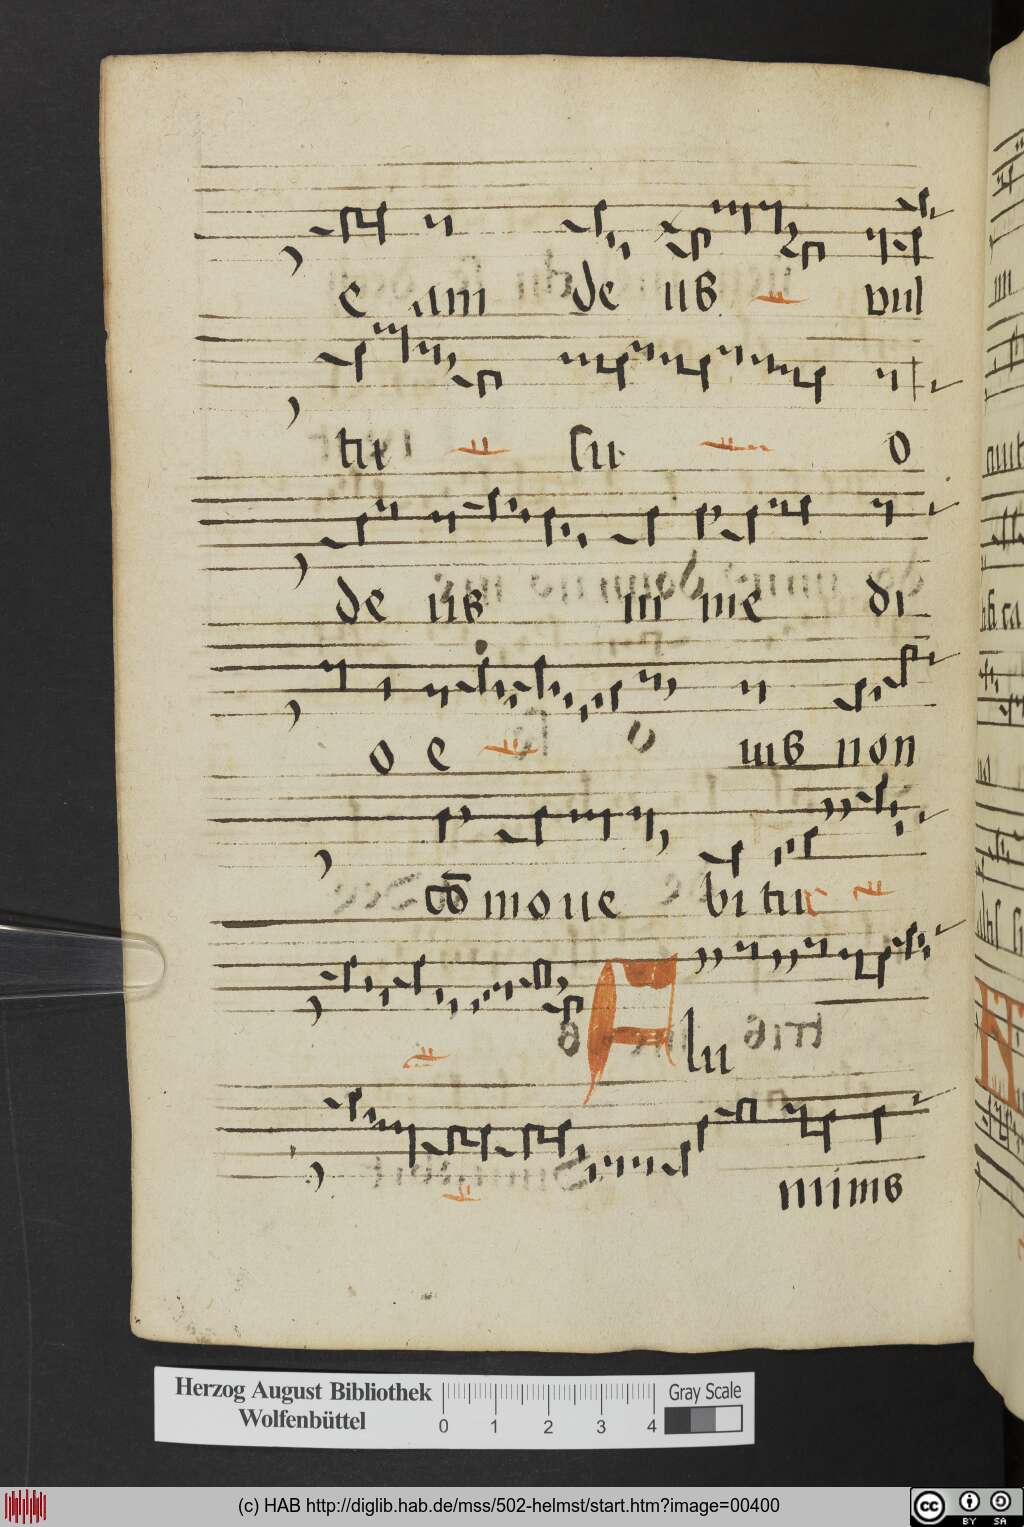 e am de us vul
tu su o
de us in me di
o e ius non
co̅ moue bi tur
A lu
nimis
Herzog August Bibliothek
Wolfenbüttel
0 1 2 3 4
Gray Scale
(c) HAB http://diglib.hab.de/mss/502-helmst/start.htm?image=00400
cc BY SA